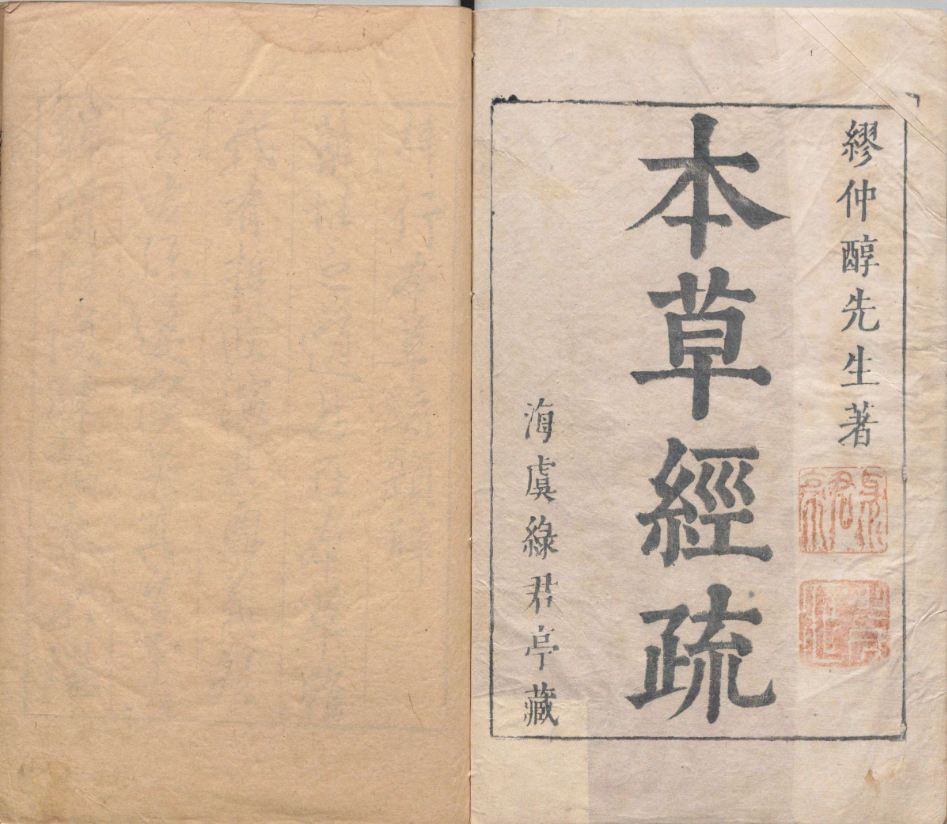 繆仲醇先生著
本草經疏
海虞綠君亭藏